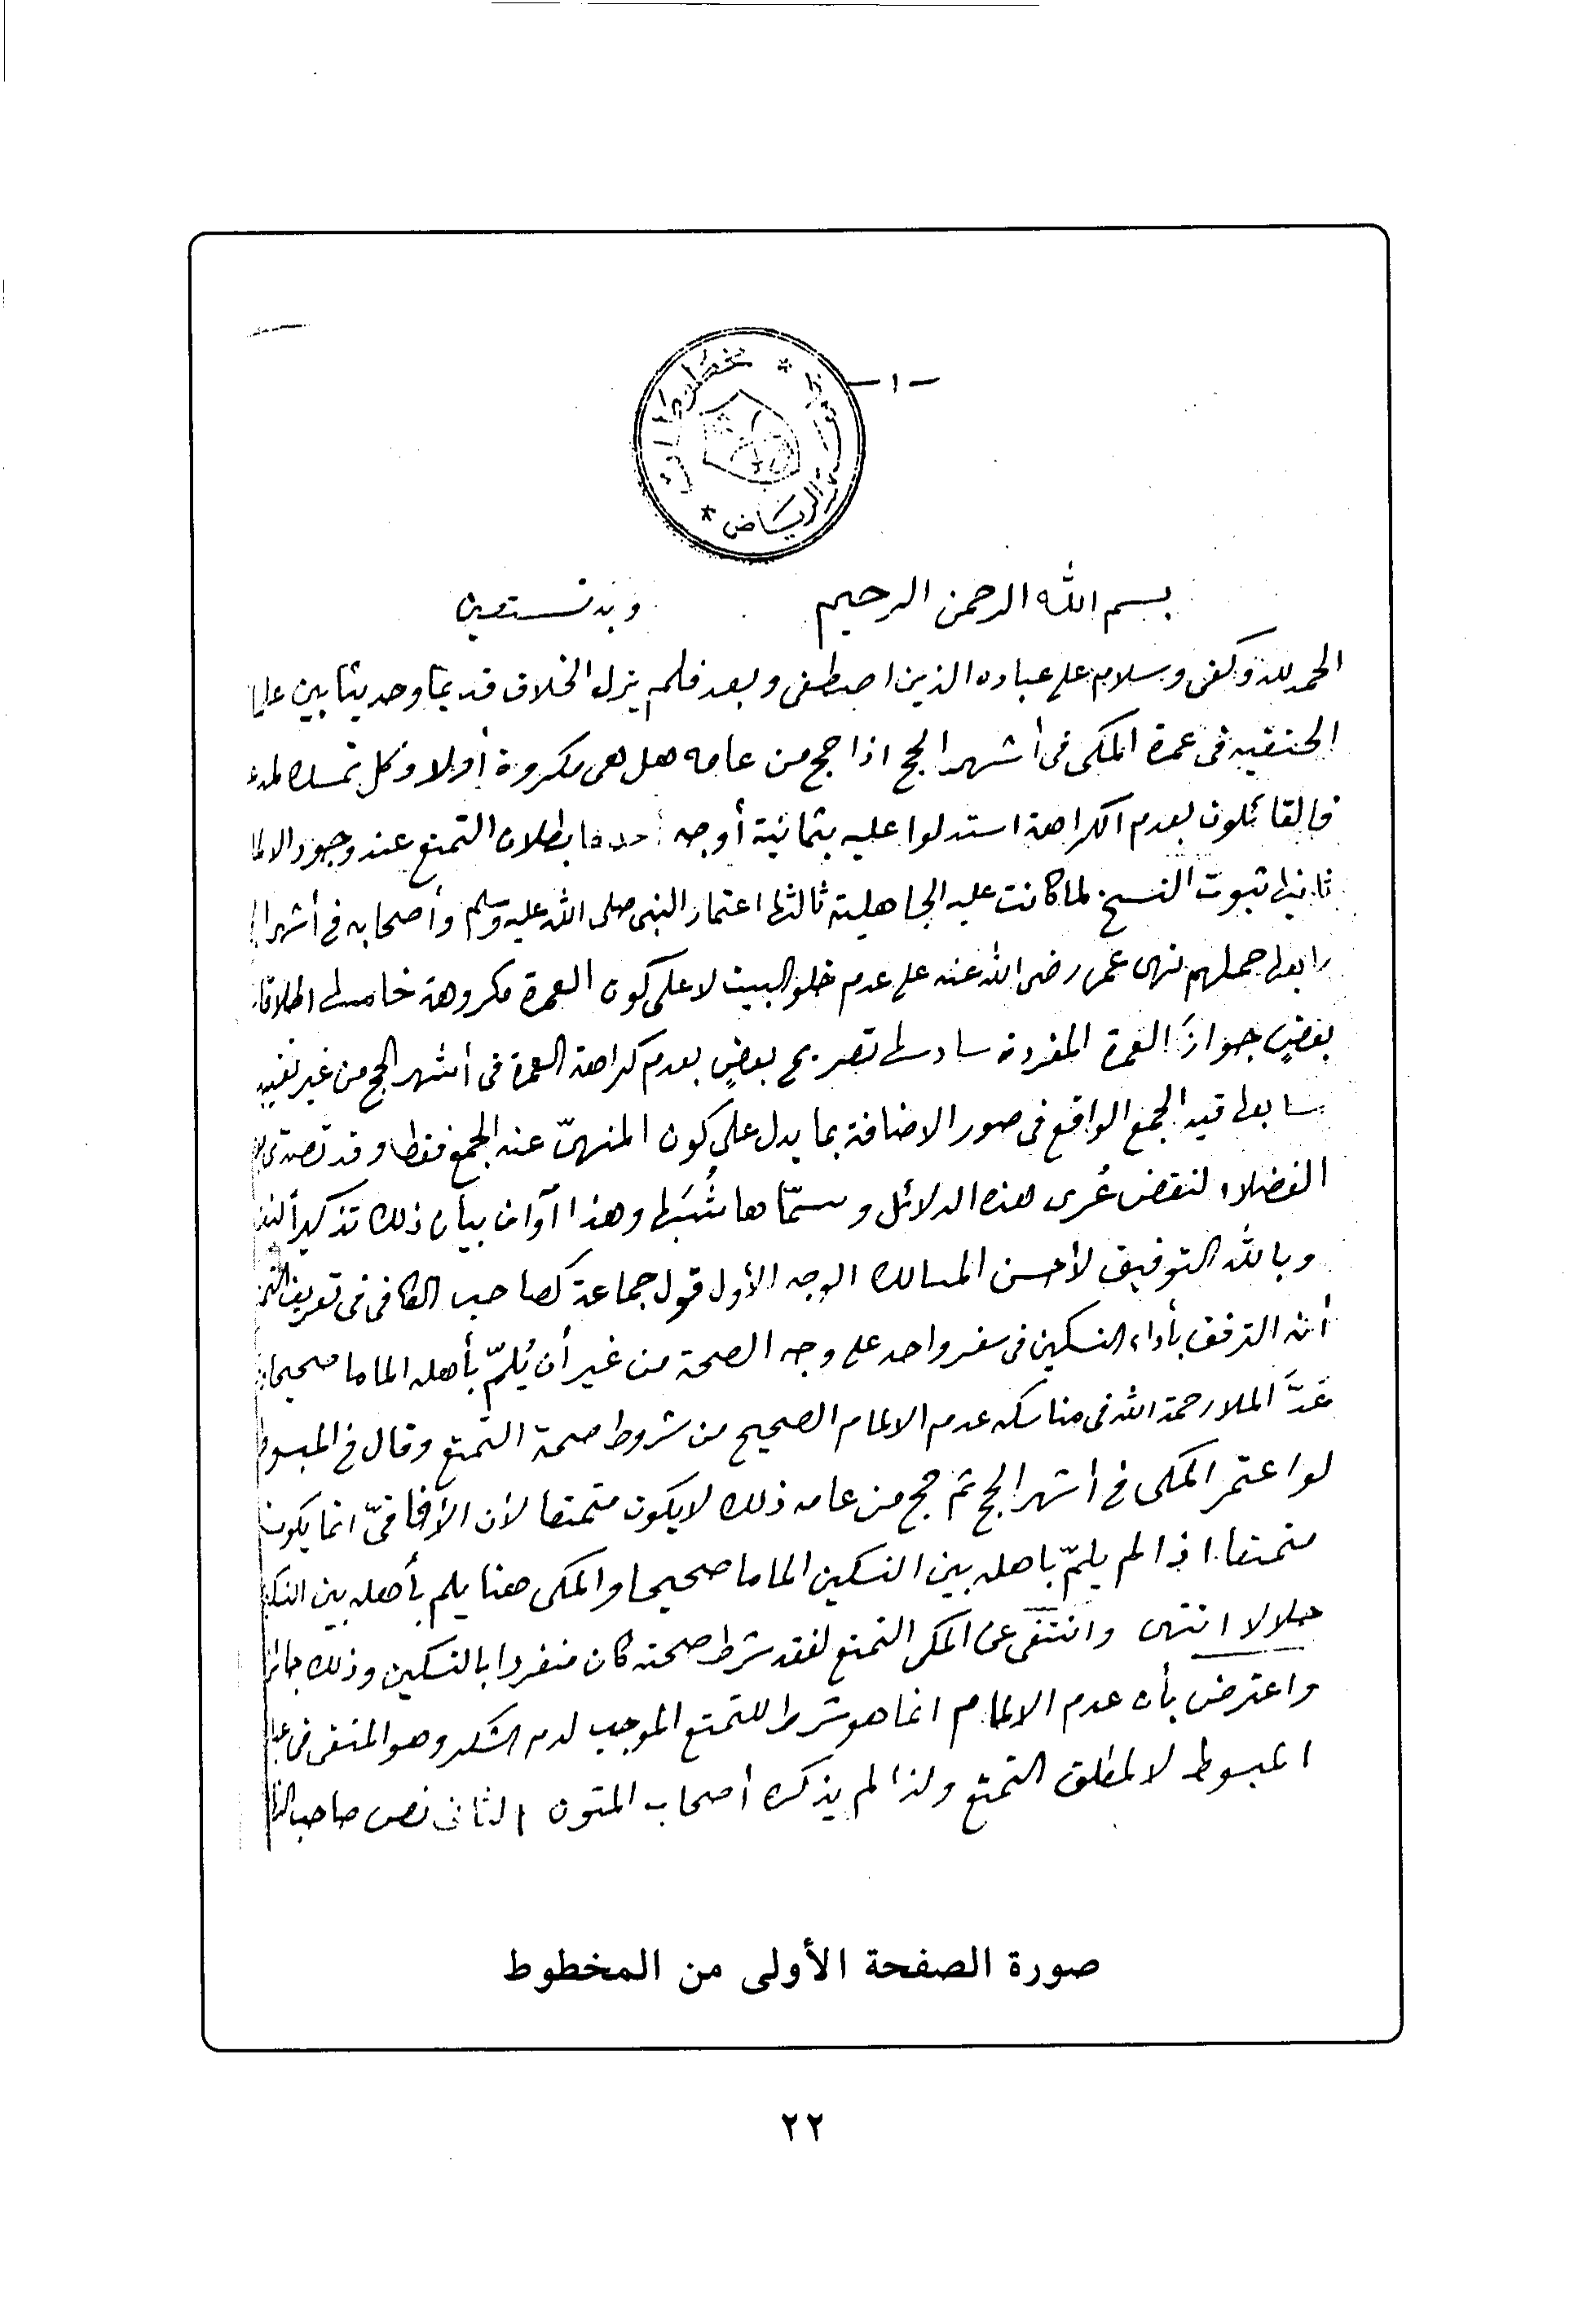 -١-
مخطوطات * جامعة الرياض *
بسم الله الرحمن الرحيم وبه نستعين
الحمد لله وكفى وسلام على عباده الذين اصطفى وبعد فلم يزل الخلاف قديما وحديثا بين علما
الحنفيه فى عمرة المكى فى أشهر الحج اذا حج من عامه هل هى مكروهة أولا وكل تمسك لمد
فالقائلون بعدم الكراهة استدلوا عليه بثمانية أوجه أحدها بطلان التمتع عند وجود الالما
ثانيها ثبوت النسخ لما كانت عليه الجاهلية ثالثها اعتمار النبى صلى الله عليه وسلم وأصحابه فى أشهر ا
رابعها حملهم نهى عمر رضى الله عنه على عدم خلو البيت لا على كون العمرة مكروهة خامسها اطلاق
بعضٍ جوازَ العمرة المفردة سادسها تصريح بعضٍ بعدم كراهة العمرة فى أشهر الحج من غير تقييد
سابعها قيد الجمع الواقع فى صور الاضافة بما يدل على كون المنهىّ عنه الجمع فقط وقد تصدى
الفضلاء لنقض عُرى هذه الدلائل وسمّاها شُبَها وهذا آوان بيان ذلك تذكيراً
وبالله التوفيق لأحسن المسالك الوجه الأول قول جماعة كصاحب الكافى فى تعريف
أنه الترفق بأداء النسكين فى سفر واحد على وجه الصحة من غير أن يُلمّ بأهله الماما صحيحا
عَدَّ الملا رحمة الله فى مناسكه عدم الالمام الصحيح من شروط صحة التمتع وقال فى المبسوط
لو اعتمر المكى فى أشهر الحج ثم حج من عامه ذلك لا يكون متمتعا لأن الأفاقىّ انما يكون
متمتعا اذا لم يلمّ باهله بين النسكين الماما صحيحا والمكى هنا يلم بأهله بين
حلالا انتهى وانتفى عن المكى التمتع لفقد شرط صحته كان منفردا بالنسكين وذلك جائز
واعترض بأن عدم الالمام انما هو شرط للتمتع الموجب لدم الشكر وهو المنفى فى
المبسوط لا لمطلق التمتع ولذا لم يذكره أصحاب المتون الثانى نص صاحب
صورة الصفحة الأولى من المخطوط
٢٢